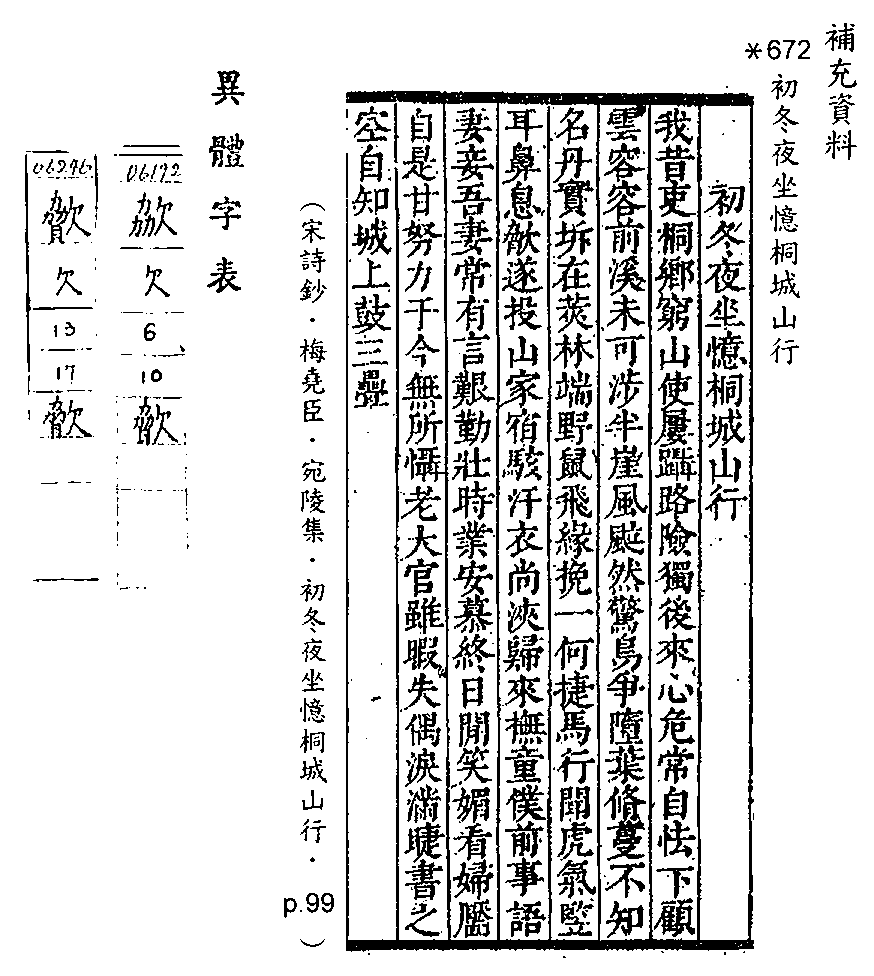 補充資料
*672 初冬夜坐憶桐城山行
初冬夜坐憶桐城山行
我昔吏桐鄉窮山使屢躡路險獨後來心危常自怯下顧
雲容容前溪未可涉半崖風颯然驚鳥爭墮葉脩蔓不知
名丹實坼在莢林端野鼠飛緣挽一何捷馬行聞虎氣竪
耳鼻息歙遂投山家宿駭汗衣尚浹歸來撫童僕前事語
妻妾吾妻常有言艱勤壯時業安慕終日閒笑媚看婦靨
自是甘努力于今無所懾老大官雖暇失偶淚滿睫書之
空自知城上鼓三疊
（宋詩鈔．梅堯臣．宛陵集．初冬夜坐憶桐城山行． p.99）
異體字表
06192
欠
6
10
06296
欠
13
17